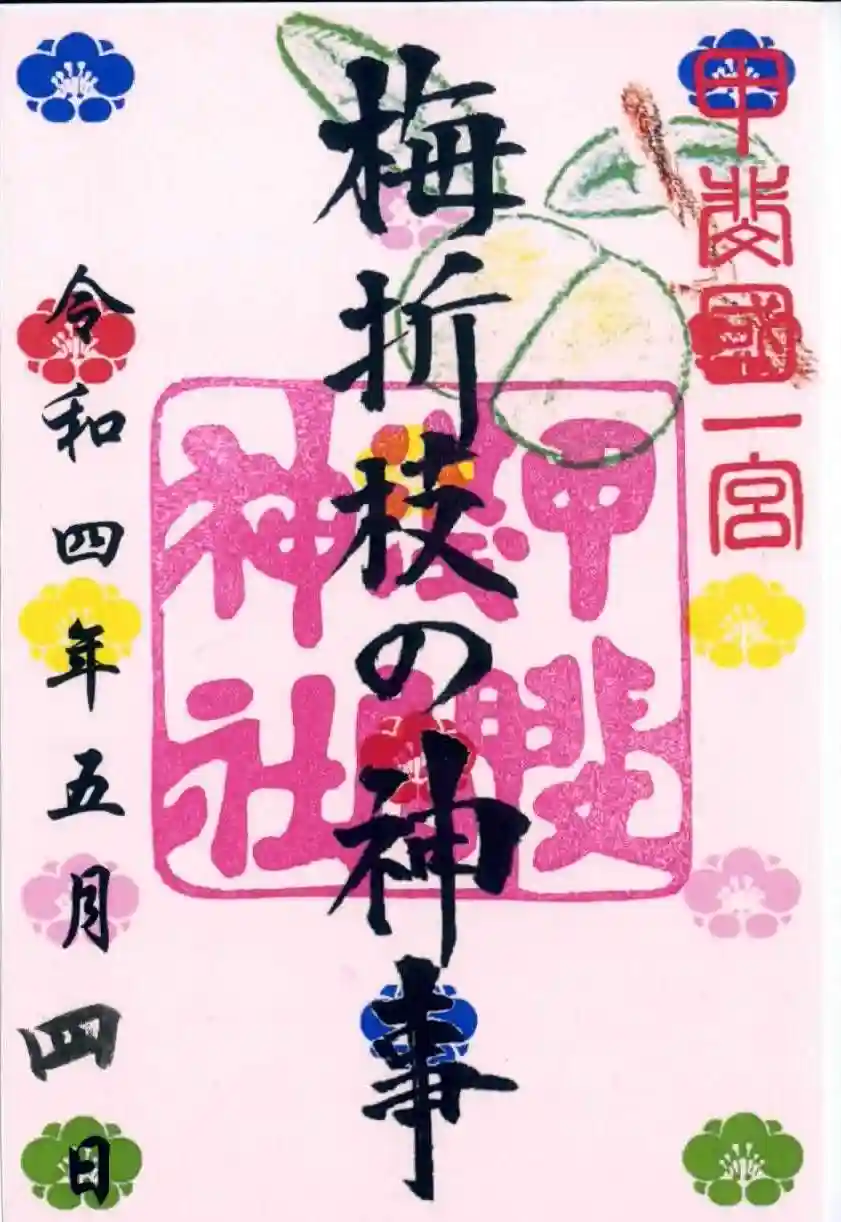 甲斐國一宮
梅折枝の神事
神社
令和四年五月四日